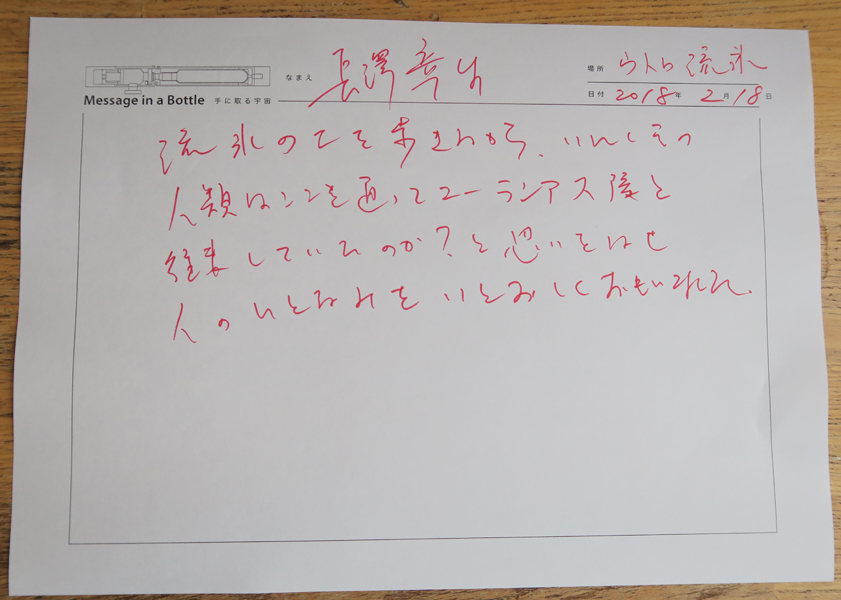 Message in a Bottle 手に取る宇宙
なまえ 長澤
場所 ウトロ流氷
日付 2018年 2月18日
流氷の上を歩きながら、いんしその
人類はここを通ってユーラシア大陸と
往来していたのか?と思いをはせ
人のいとなみをいとおしくおもいました。